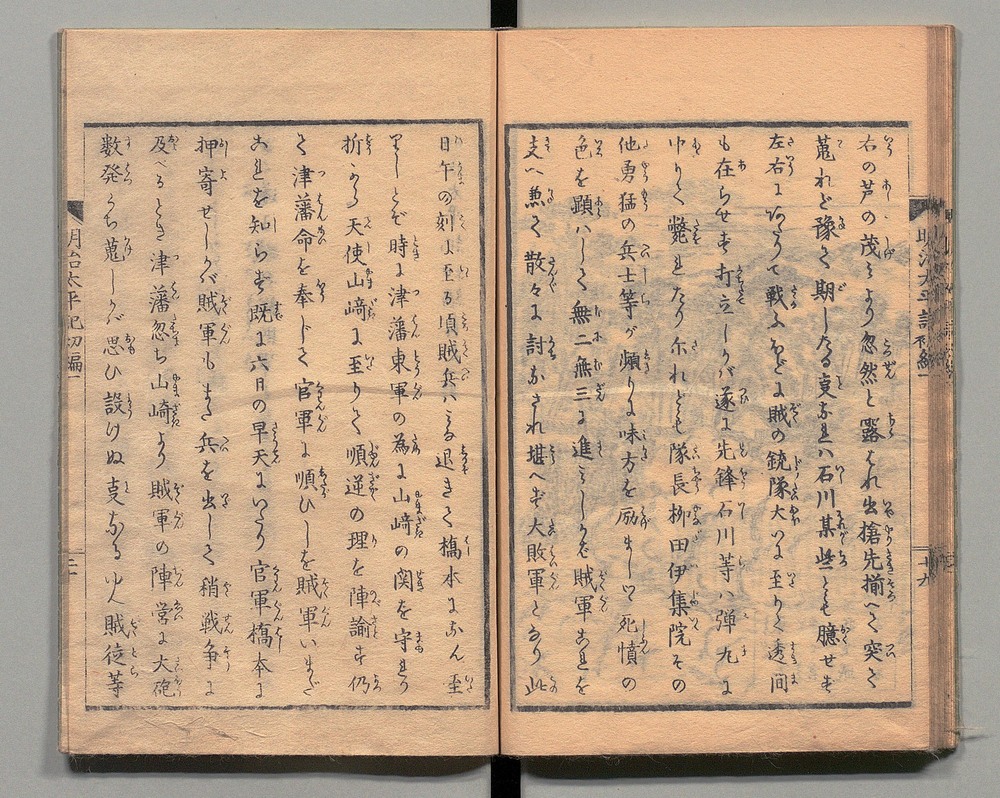 右の芦の茂みより忽然と露はれ出槍先揃へて突て
蒐れど豫て期したる事なれハ石川某些とも臆せず
左右にあたりて戦ふほどに賊の銃隊大いに至りて透間
も在らせず打立しかバ遂に先鋒石川等ハ弾丸に
中りて斃れたり尓れども隊長柳田伊集院その
他勇猛の兵士等が頻りに味方を励ましつゝ死憤の
色を顕ハして無二無三に進みしかバ賊軍これを
支へ兼て散々に討なされ堪へず大敗軍となり此
日午の刻に至る頃賊兵ハみな退きて橋本になん至
りしとぞ時に津藩東軍の為に山﨑の関を守れり
折から天使山﨑に至りて順逆の理を陣諭す仍
て津藩命を奉じて官軍に順ひしを賊軍いまだ
これを知らず既に六日の早天にいたり官軍橋本に
押寄せしかバ賊軍もまた兵を出して稍戦争に
及べるとき津藩忽ち山崎より賊軍の陣営に大砲
数発うち蒐しかバ思ひ設けぬ事なるゆへ賊徒等
明治太平記初編一
十九
明治太平記初編一
二十